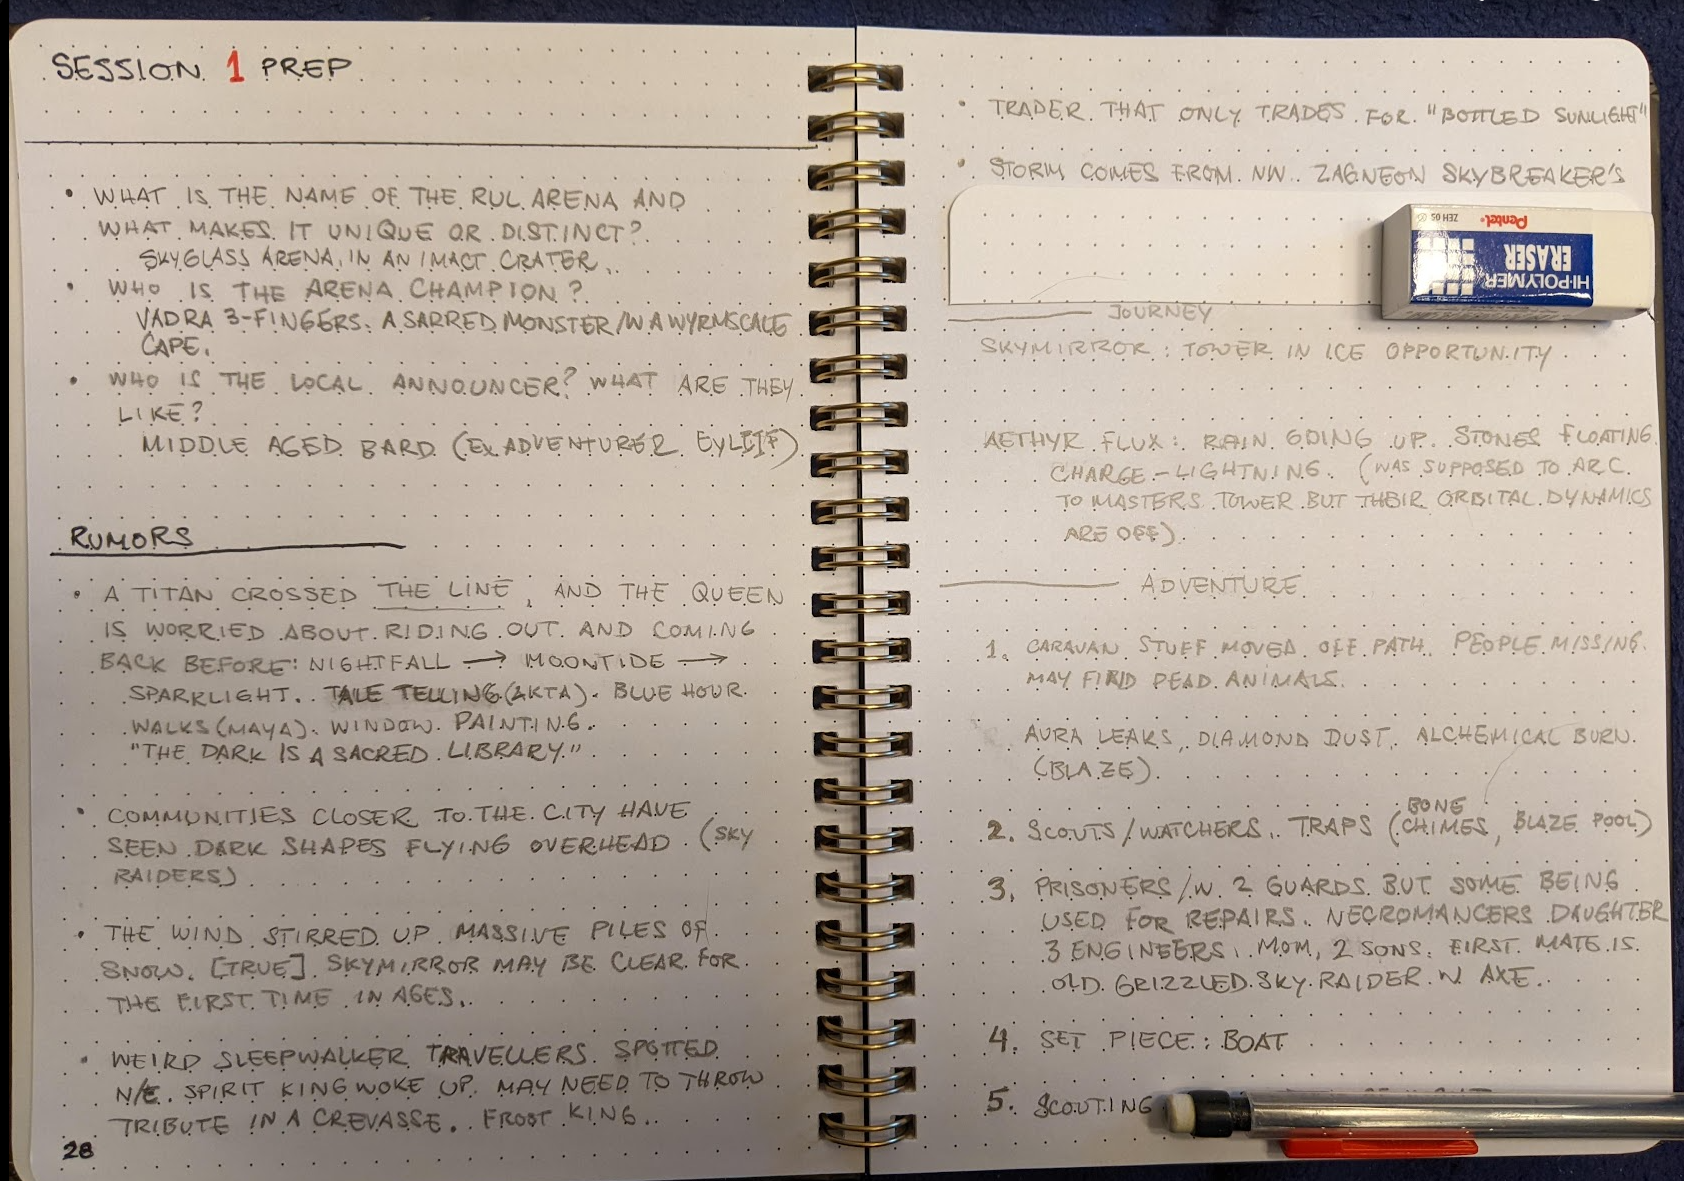 SESSION 1 PREP
• WHAT IS THE NAME OF THE RUL ARENA AND
WHAT MAKES IT UNIQUE OR DISTINCT?
SKYGLASS ARENA, IN AN IMACT CRATER.
• WHO IS THE ARENA CHAMPION?
VADRA 3-FINGERS. A SARRED MONSTER /W A WYRMSCALE
CAPE.
• WHO IS THE LOCAL ANNOUNCER? WHAT ARE THEY
LIKE?
MIDDLE AGED BARD (EX ADVENTURER
RUMORS
• A TITAN CROSSED THE LINE, AND THE QUEEN
IS WORRIED ABOUT RIDING OUT AND COMING
BACK BEFORE: NIGHTFALL → MOONTIDE →
SPARKLIGHT. TALE TELLING BLUE HOUR
WALKS (MAYA). WINDOW PAINTING.
"THE DARK IS A SACRED LIBRARY"
• COMMUNITIES CLOSER TO THE CITY HAVE
SEEN DARK SHAPES FLYING OVERHEAD (SKY
RAIDERS)
• THE WIND STIRRED UP MASSIVE PILES OF
SNOW. [TRUE] SKYMIRROR MAY BE CLEAR FOR
THE FIRST TIME IN AGES.
• WEIRD SLEEPWALKER TRAVELLERS SPOTTED
N/E. SPIRIT KING WOKE UP. MAY NEED TO THROW
TRIBUTE IN A CREVASSE. FROST KING.
28
• TRADER THAT ONLY TRADES FOR "BOTTLED SUNLIGHT"
• STORM COMES FROM NW. ZAGNEON SKYBREAKER'S
Pentel ZEH 05
HI-POLYMER
ERASER
JOURNEY
SKYMIRROR: TOWER IN ICE OPPORTUNITY
AETHYR FLUX: RAIN GOING UP. STONES FLOATING.
CHARGE - LIGHTNING. (WAS SUPPOSED TO ARC
TO MASTERS TOWER BUT THEIR ORBITAL DYNAMICS
ARE OFF).
ADVENTURE
1. CARAVAN STUFF MOVED OFF PATH. PEOPLE MISSING.
MAY FIND DEAD ANIMALS.
AURA LEAKS, DIAMOND DUST, ALCHEMICAL BURN.
(BLAZE).
2. SCOUTS/WATCHERS. TRAPS (BONE CHIMES, BLAZE POOL)
3. PRISONERS /W 2 GUARDS BUT SOME BEING
USED FOR REPAIRS. NECROMANCERS DAUGHTER
3 ENGINEERS. MOM, 2 SONS. FIRST MATE IS
OLD GRIZZLED SKY RAIDER W AXE.
4. SET PIECE: BOAT
5. SCOUTING